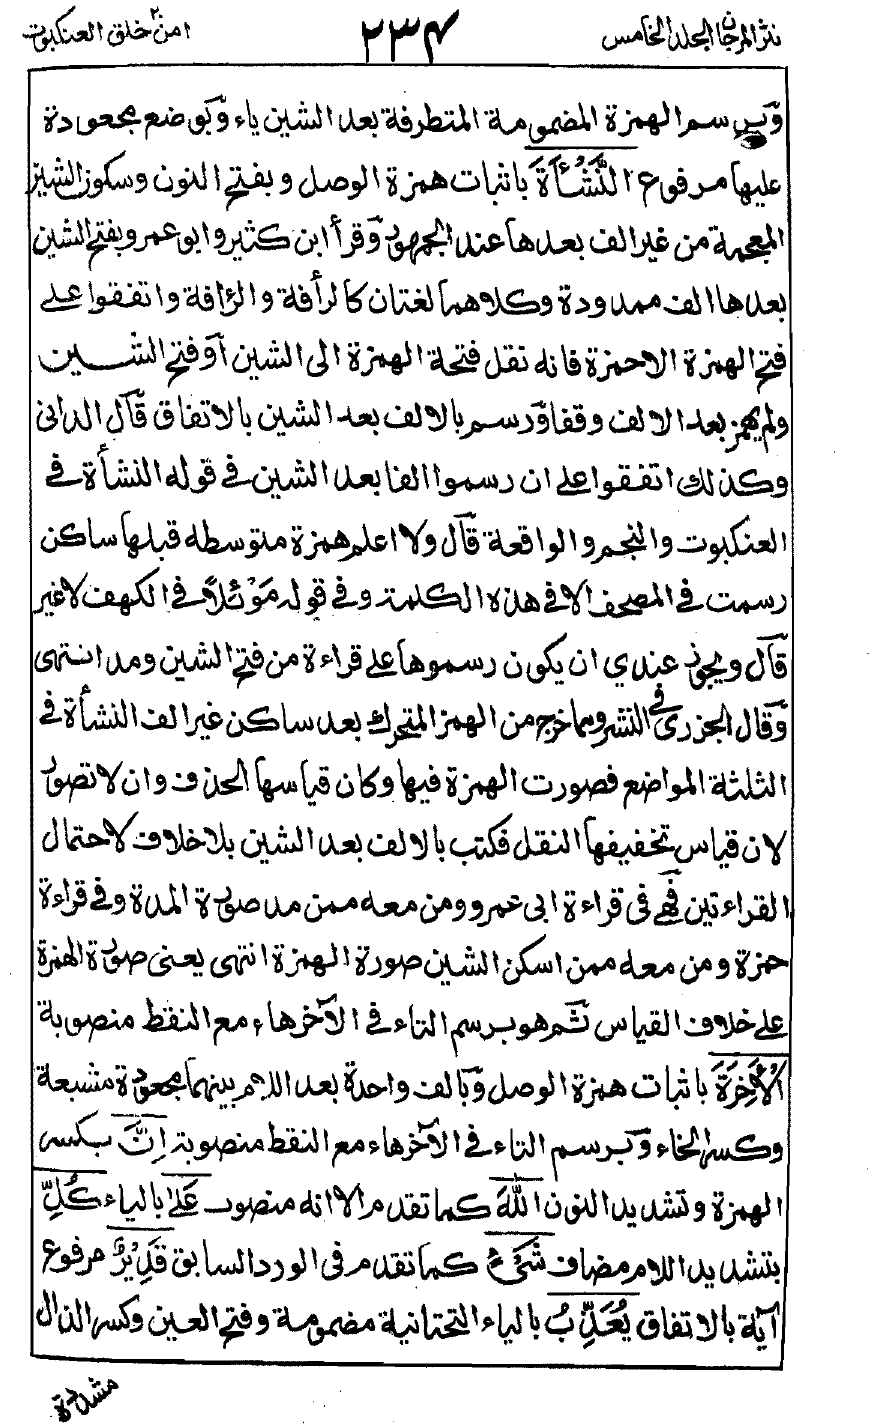 نثر المرجان المجلد الخامس
٢٣٤
امن خلق العنكبوت
وبرسم الهمزة المضمومة المتطرفة بعد الشين ياء وبوضع مجعودة
عليها مرفوع النَّشْأَةَ باثبات همزة الوصل وبفتح النون وسكون الشين
المعجمة من غير الف بعدها عند الجمهور وقرأ ابن كثير وابو عمرو بفتح الشين
بعدها الف ممدودة وكلاهما لغتان كالرأفة والرٰافة واتفقوا على
فتح الهمزة الا حمزة فانه نقل فتحة الهمزة الى الشين او فتح الشين
ولم يهمز بعد الالف وقفا ورسم بالالف بعد الشين بالاتفاق قال الدانى
وكذلك اتفقوا على ان رسموا الفا بعد الشين فى قوله النشأة فى
العنكبوت والنجم والواقعة قال ولا اعلم همزة متوسطه قبلها ساكن
رسمت فى المصحف الا فى هذه الكلمة وفى قوله مَوْئلًا فى الكهف لا غير
قال ويجوز عندي ان يكون رسموها على قراءة من فتح الشين ومد انتهى
وقال الجزرى فى النشر ومما خرج من الهمز المتحرك بعد ساكن غير الف النشأة فى
الثلثة المواضع فصورت الهمزة فيها وكان قياسها الحذف وان لا تصور
لان قياس تخفيفها النقل فكتب بالالف بعد الشين بلا خلاف لاحتمال
القراءتين فهى فى قراءة ابى عمرو ومن معه ممن مد صورة المدة وفى قراءة
حمزة ومن معه ممن اسكن الشين صورة الهمزة انتهى يعنى صورة الهمزة
على خلاف القياس ثم هو برسم التاء فى الآخر هاء مع النقط منصوبة
الْاٰخِرَةَ باثبات همزة الوصل وبالف واحدة بعد اللام بينهما مجعودة مشبعة
وكسر الخاء وبرسم التاء فى الآخر هاء مع النقط منصوبة اِنَّ بكسر
الهمزة وتشديد النون اللّٰهَ كما تقدم الا انه منصوب عَلٰى بالياء كُلِّ
بتشديد اللام مضاف شَىْءٍ كما تقدم فى الورد السابق قَدِيْرٌ مرفوع
آية بالاتفاق يُعَذِّبُ بالياء التحتانية مضمومة وفتح العين وكسر الذال
مشددة